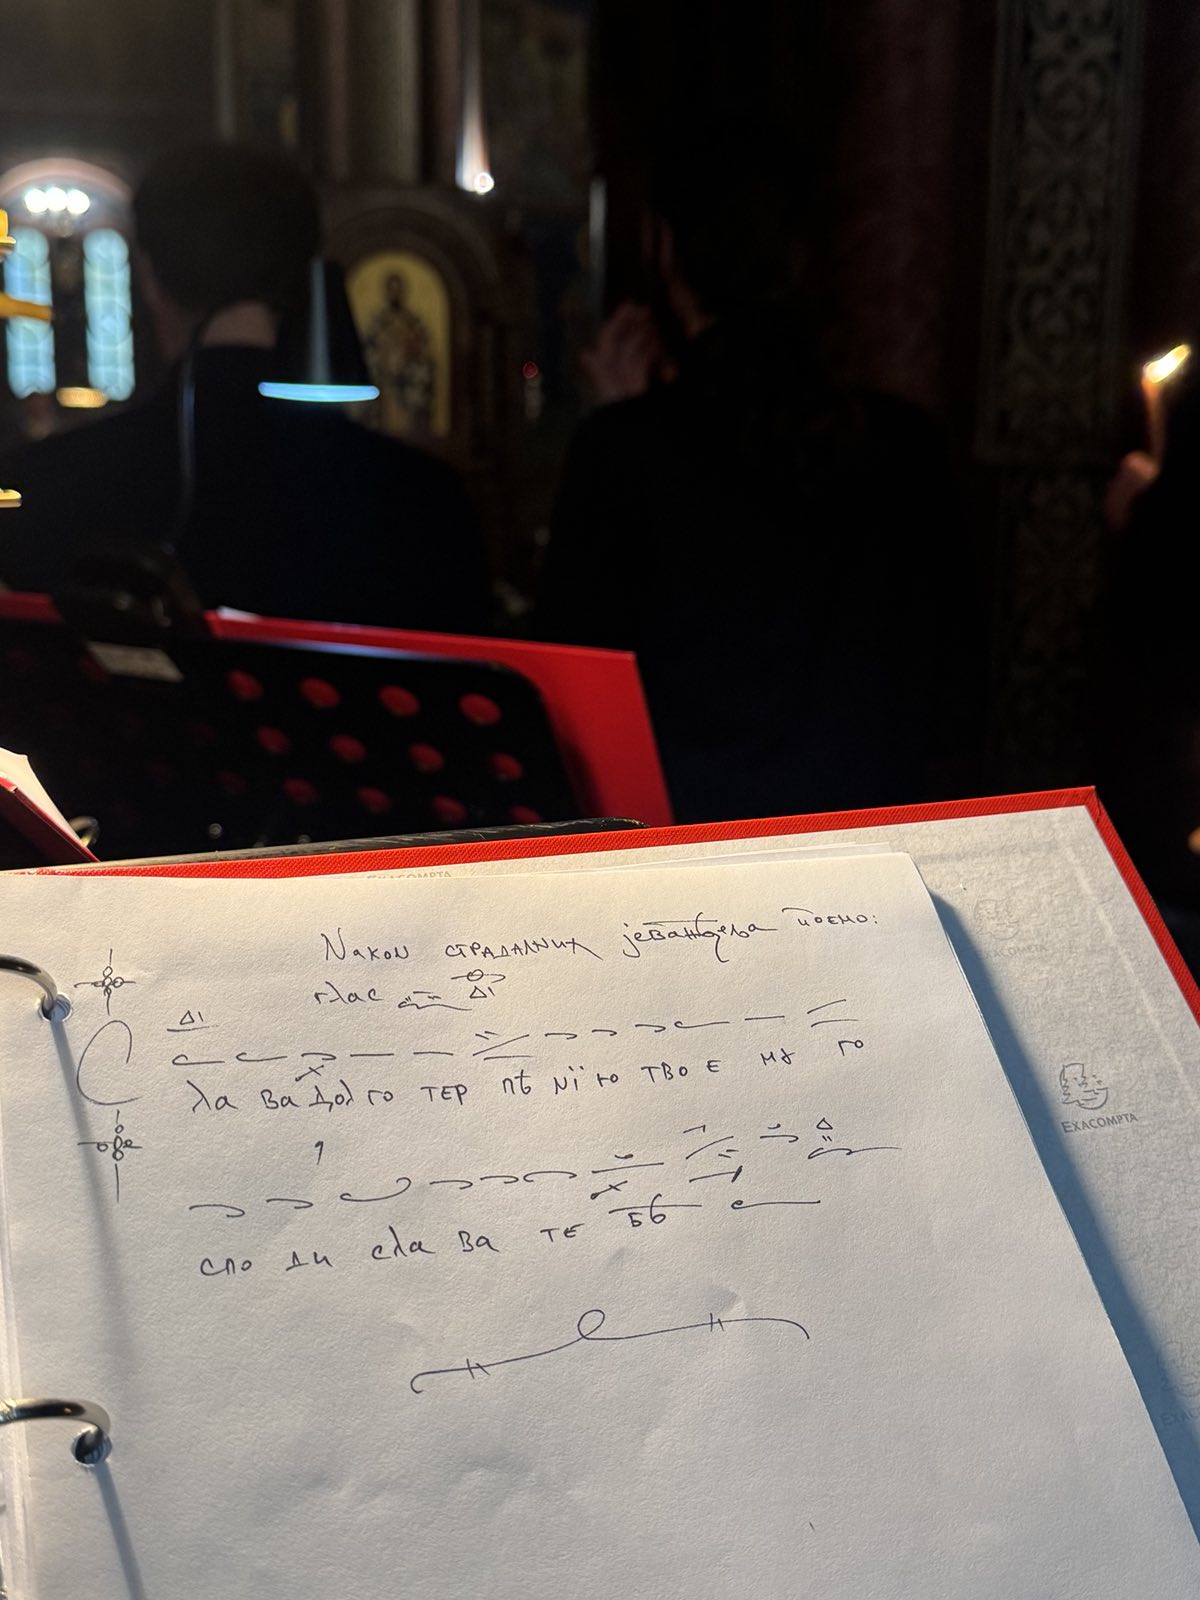 EXACOMPTA
Након страдалних јеванђеља појемо:
глас
Δι
Δι
С ла ва дол го тер пѣ нї ю тво е мꙋ го
Δ
спо ди сла ва те бѣ
EXACOMPTA
EXACOMPTA